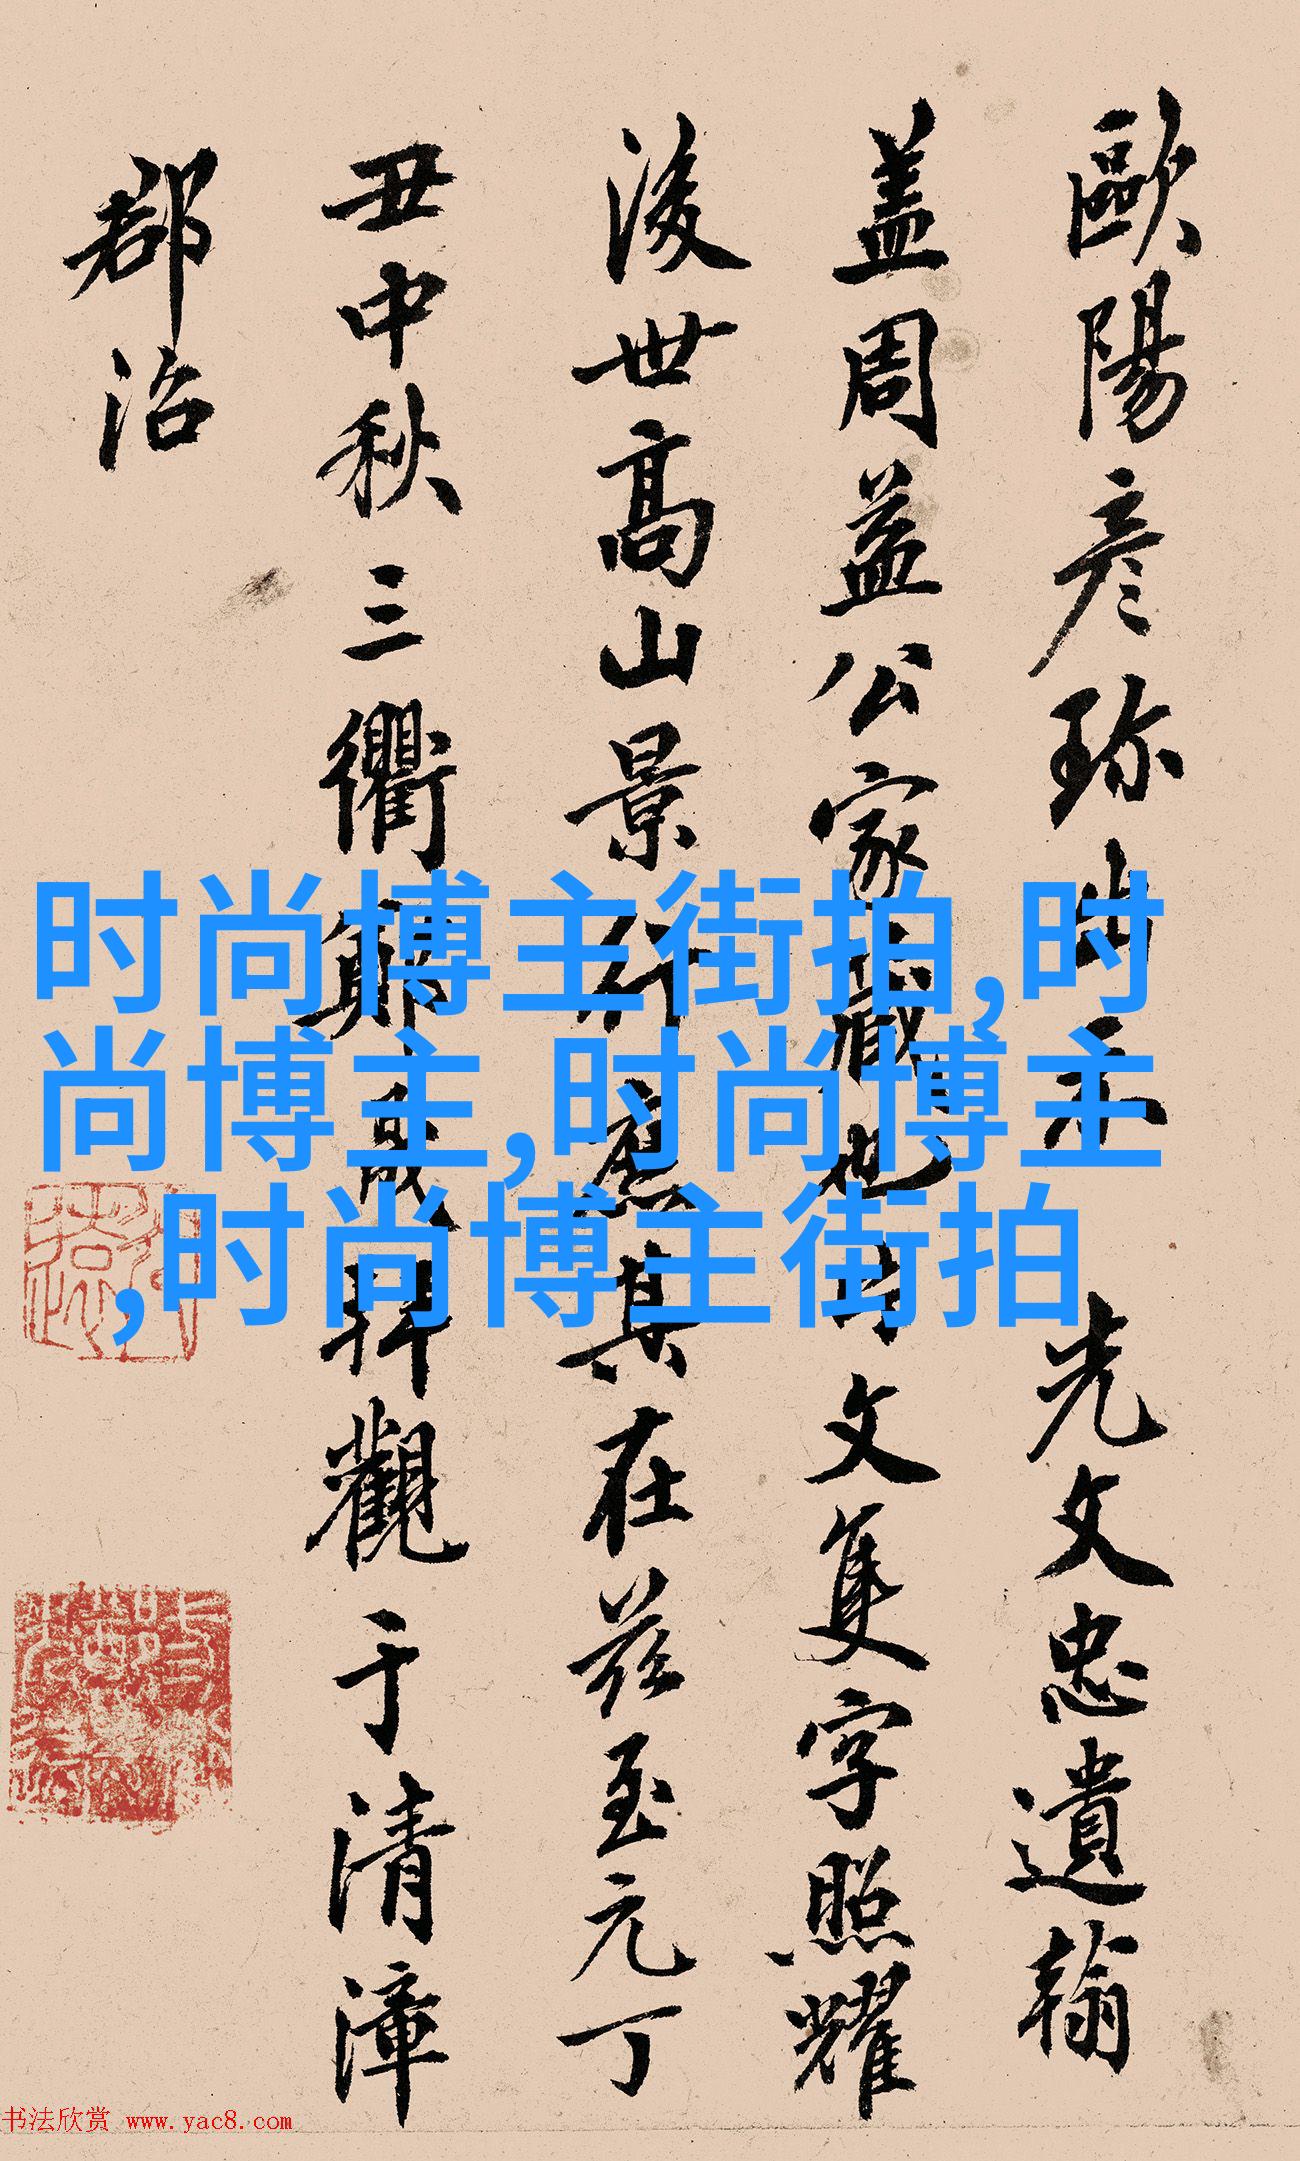 歐陽彦珎出示 光文忠遺翰
盖周益公家藏也 文隻字照耀
後世高山景行 應其在茲至元丁
丑中秋三衢鄭 拜觀于清漳
郡治
时尚博主街拍,时
尚博主,时尚博主
,时尚博主街拍
书法欣赏 www.yac8.com